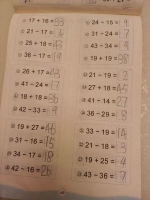 17 + 16 = 33
21 - 17 = 4
25 + 18 = 43
36 - 17 = 19
26 + 17 = 43
41 - 24 = 17
18 + 18 = 36
42 - 33 = 9
19 + 27 = 46
31 - 16 = 15
34 - 17 = 18
42 - 16 = 26
24 - 15 = 9
31 - 24 = 7
43 - 34 = 9
19 + 19 = 38
21 - 19 = 2
27 + 18 = 45
41 - 14 = 27
28 - 19 =
33 - 19 = 14
21 - 18 = 3
19 + 25 = 4
43 - 36 = 7